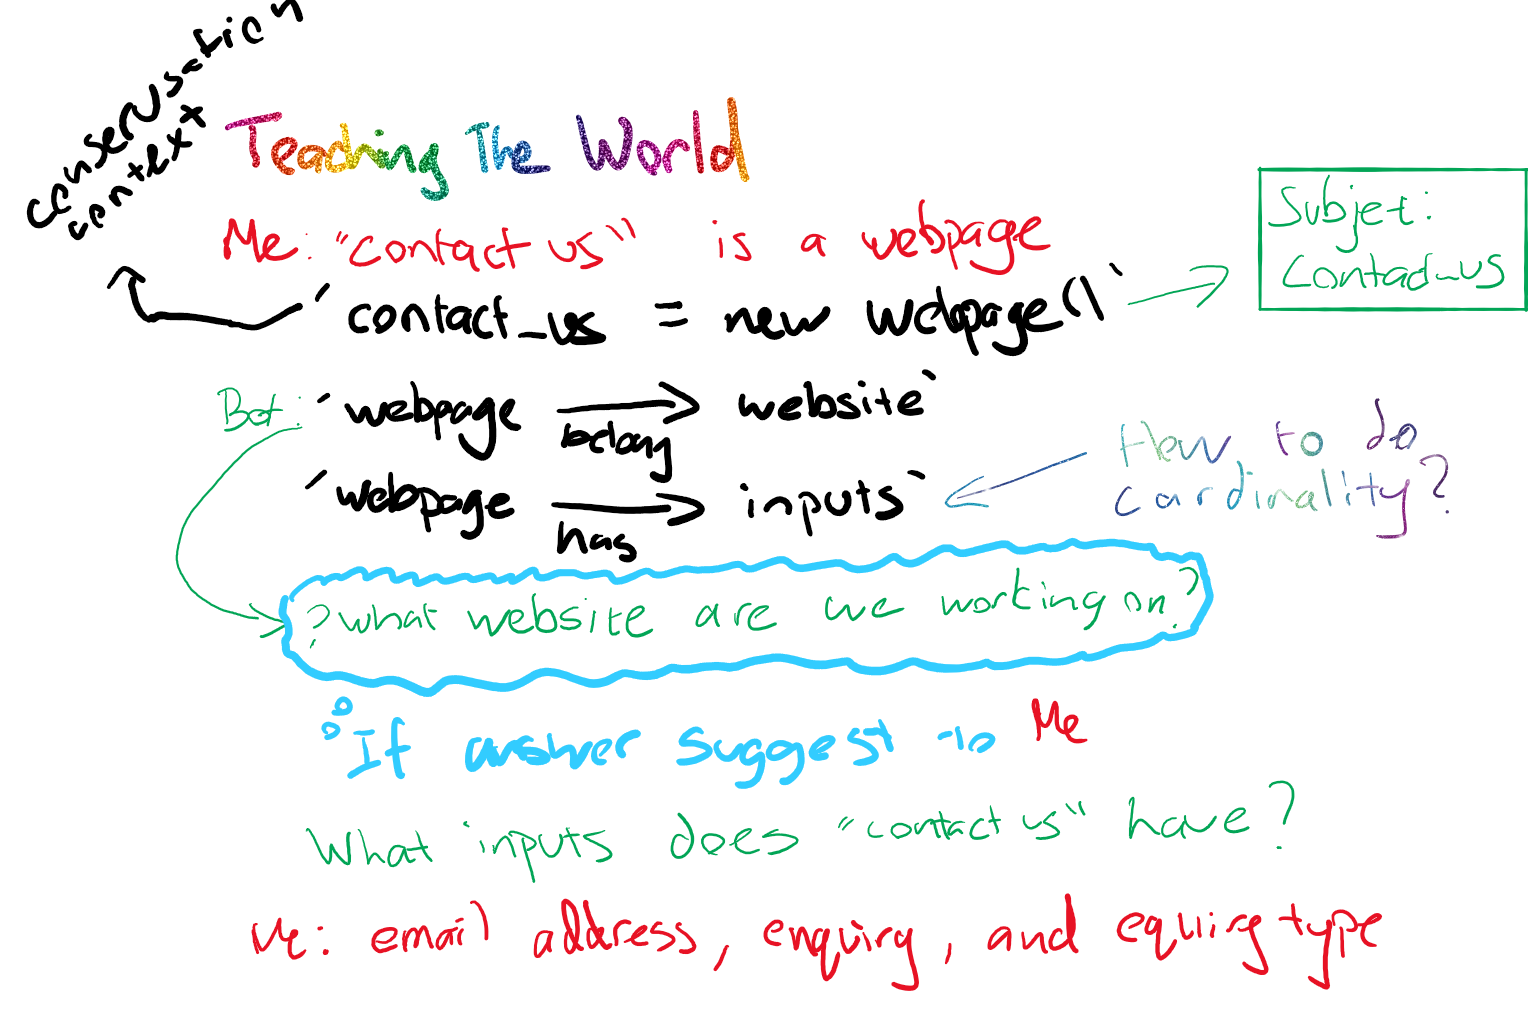 conservsation
context
Teaching The World
Me: "contact us" is a webpage
Subjet:
Contact_us
'contact_us = new Webpage()`
Bot: 'webpage belong website`
How to do
cardinality?
'webpage has inputs`
?what website are we working on?
If answer suggest to Me
What inputs does "contact us" have?
Me: email address, enquiry, and equiry type